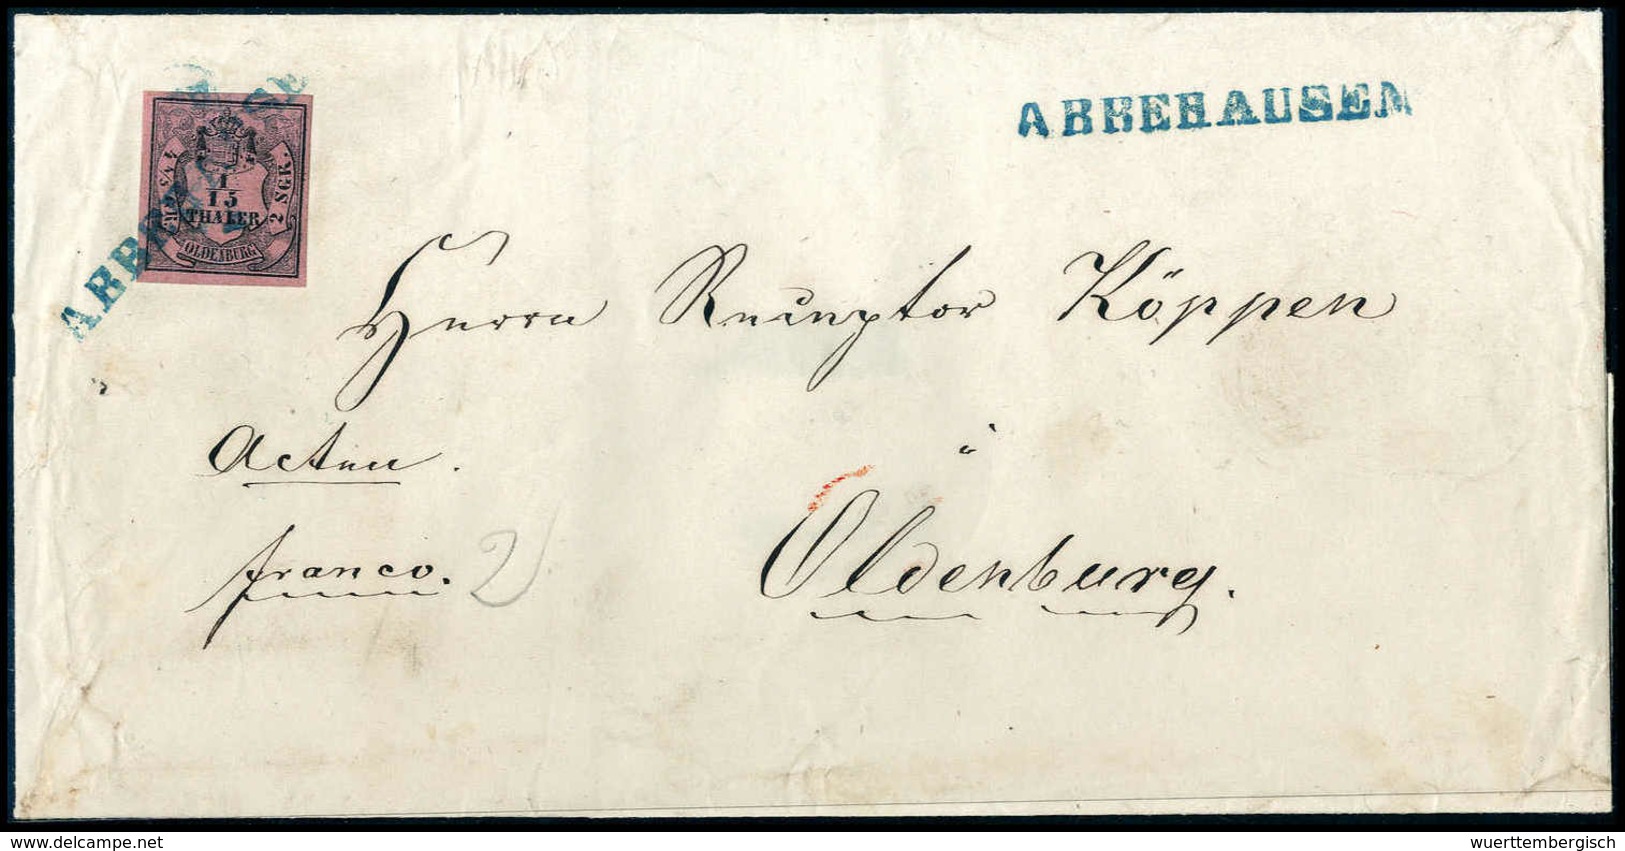 ABBEHAUSEN
ABBEHAUSEN
4 SVS.
1
15
THALER
2 SGR.
OLDENBURG
Herrn Receptor Köppen
à
Acten.
Oldenburg.
franco.
2
delcampe.net
wuerttembergisch